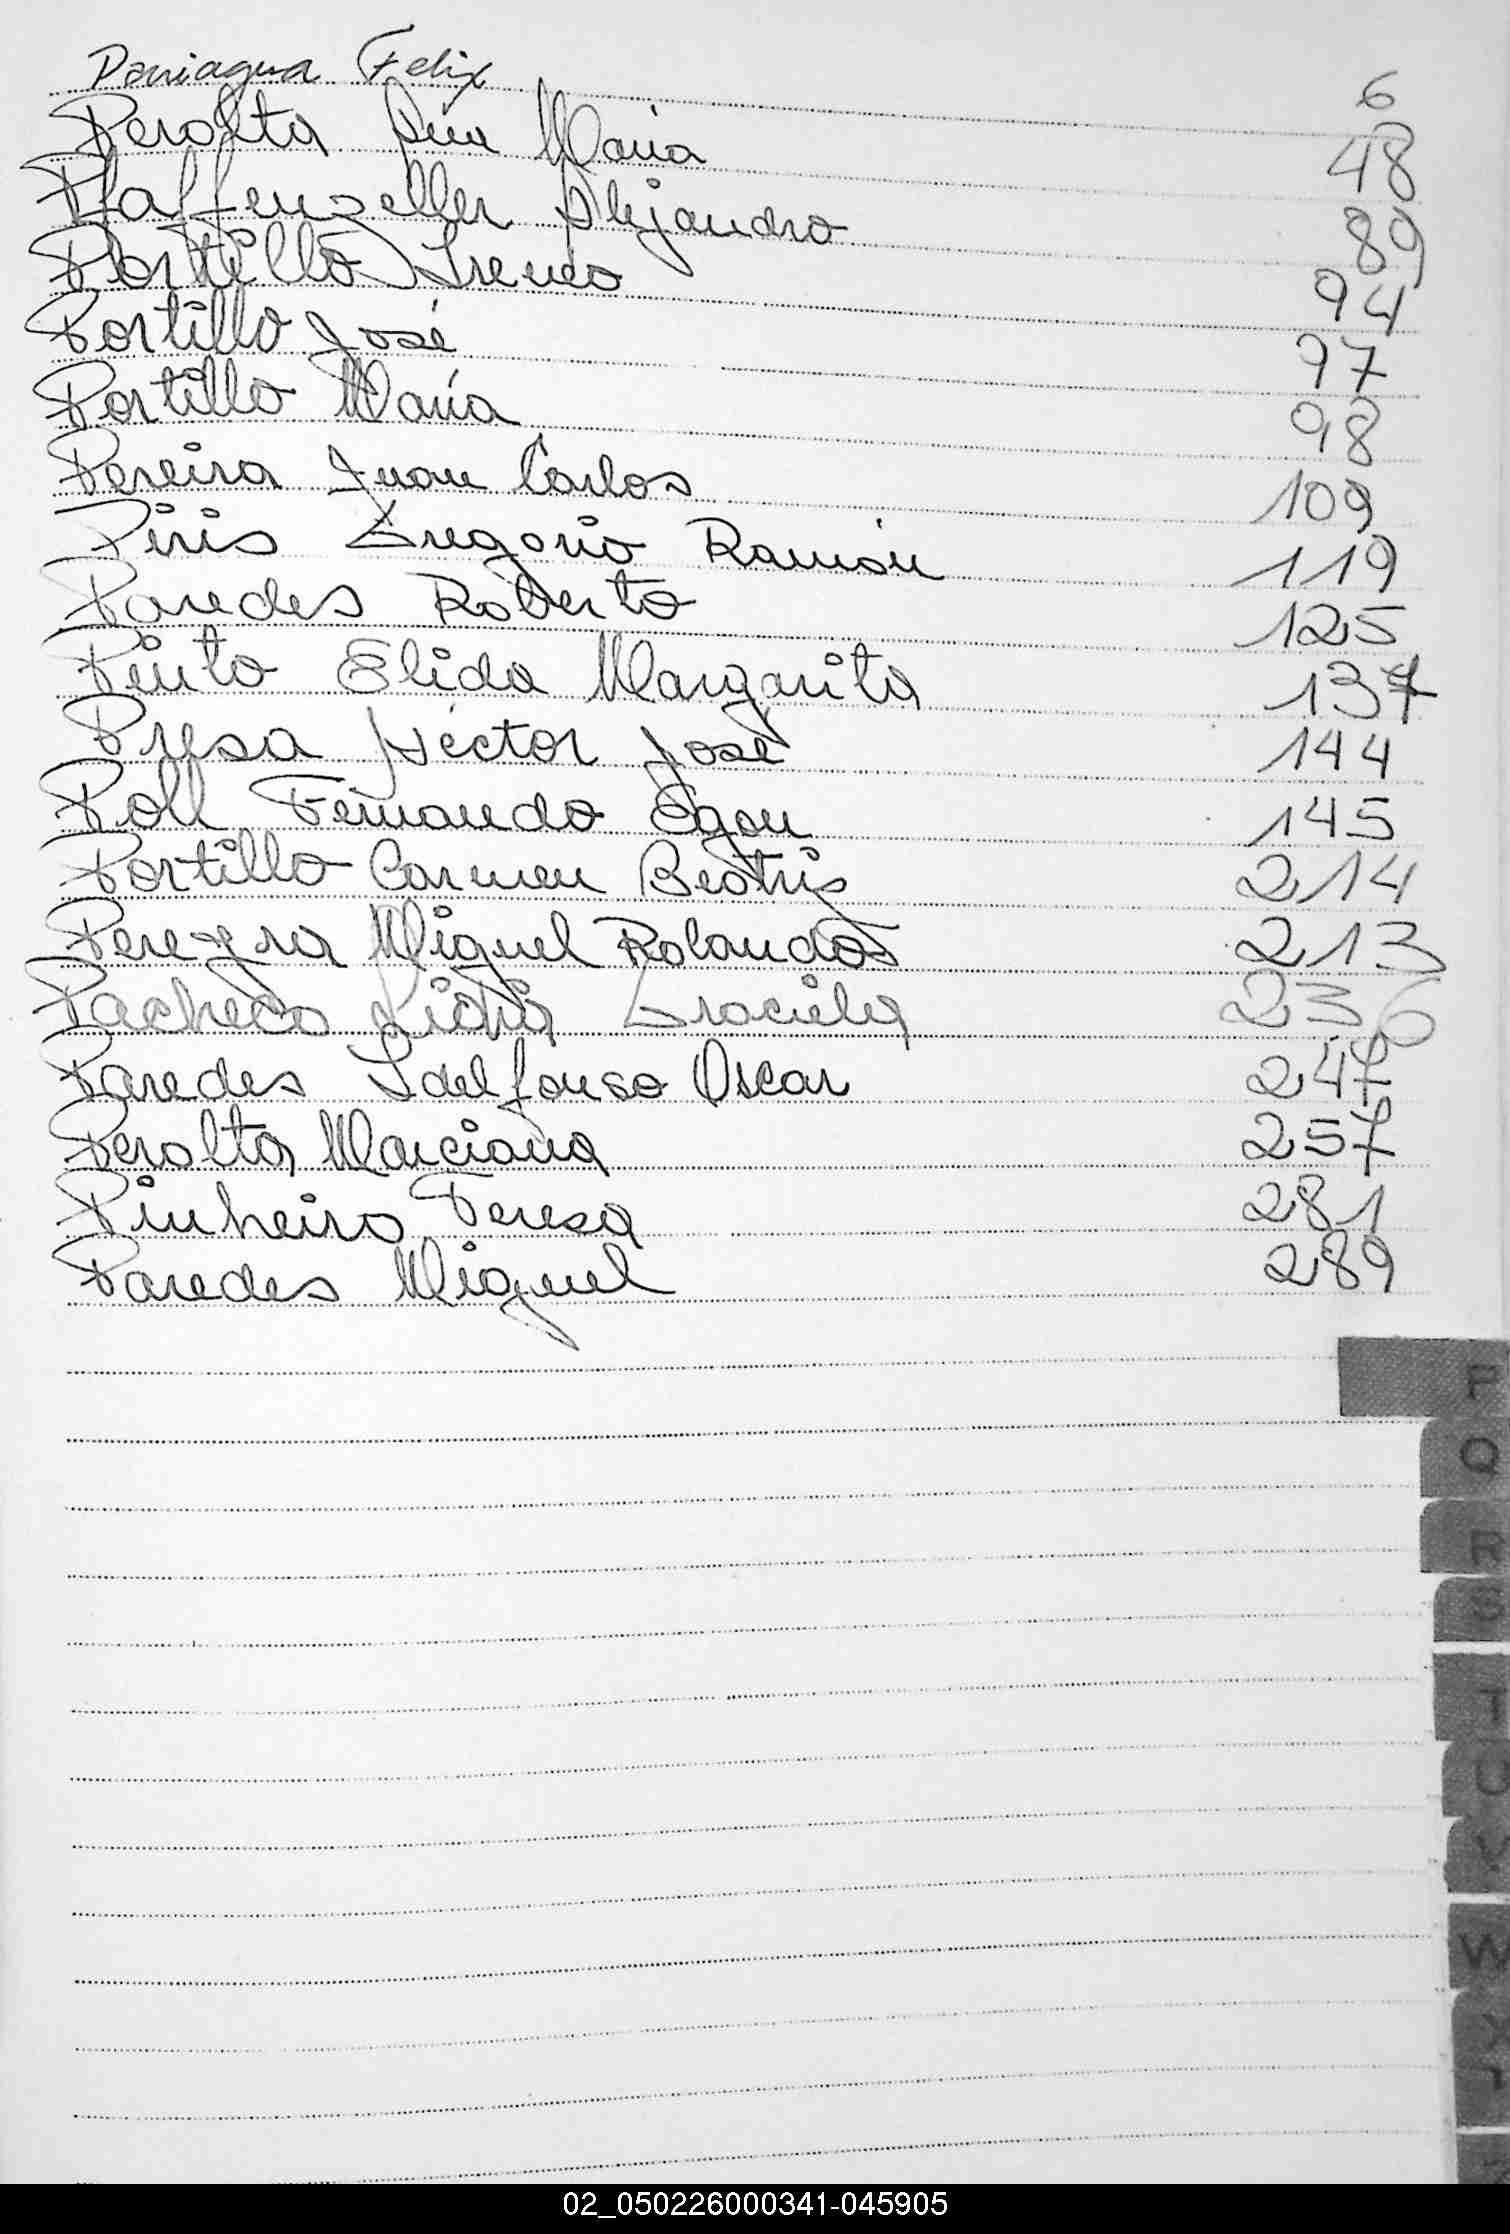 Paniagua Felix 6
Peralta Ana Maria 48
Pfaffenzeller Alejandro 89
Portillo Ireneo 94
Portillo José 97
Portillo María 98
Pereira Juan Carlos 109
Piris Gregorio Ramón 119
Paredes Roberto 125
Pinto Elida Margarita 137
Presa Héctor José 144
Poll Fernando Egon 145
Portillo Carmen Beatris 214
Pereyra Miguel Rolando 213
Pacheco Lidia Graciela 236
Paredes Idelfonso Oscar 247
Peralta Marciana 257
Pinheiro Teresa 281
Paredes Miguel 289
P
Q
R
S
T
U
V
W
X
Y
02_050226000341-045905